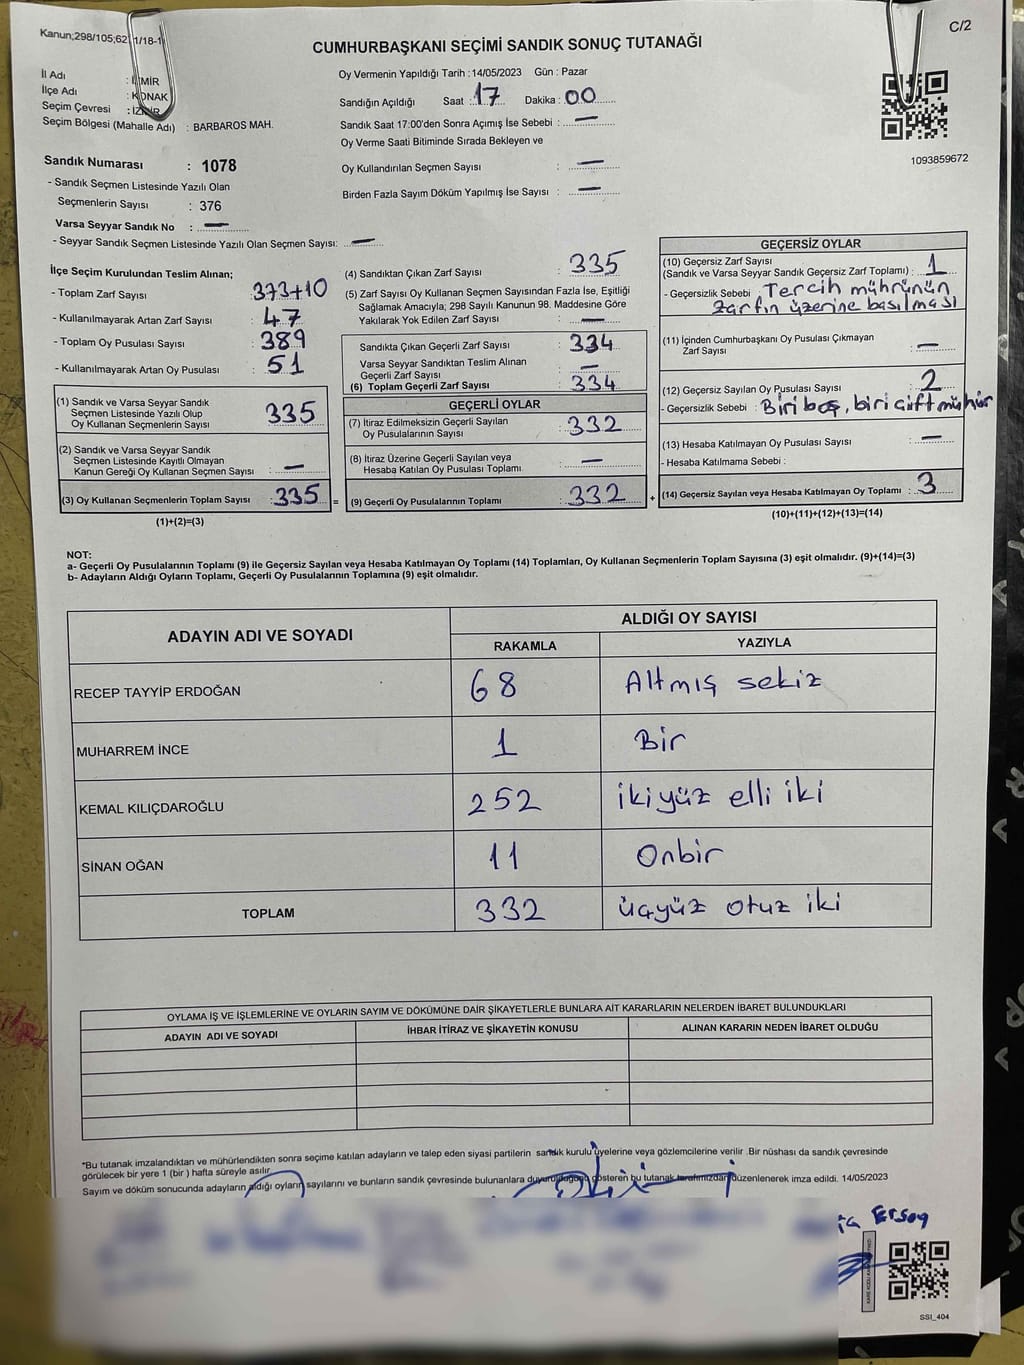 Kanun;298/105;62 1/18-1
C/2
CUMHURBAŞKANI SEÇİMİ SANDIK SONUÇ TUTANAĞI
İl Adı : İZMİR
İlçe Adı : KONAK
Seçim Çevresi : İZMİR
Seçim Bölgesi (Mahalle Adı) : BARBAROS MAH.
Sandık Numarası : 1078
- Sandık Seçmen Listesinde Yazılı Olan
Seçmenlerin Sayısı : 376
Varsa Seyyar Sandık No : —
- Seyyar Sandık Seçmen Listesinde Yazılı Olan Seçmen Sayısı: —
Oy Vermenin Yapıldığı Tarih :14/05/2023 Gün : Pazar
Sandığın Açıldığı Saat : 17 Dakika : 00
Sandık Saat 17:00'den Sonra Açımış İse Sebebi : —
Oy Verme Saati Bitiminde Sırada Bekleyen ve
Oy Kullandırılan Seçmen Sayısı : —
Birden Fazla Sayım Döküm Yapılmış İse Sayısı : —
1093859672
İlçe Seçim Kurulundan Teslim Alınan;
- Toplam Zarf Sayısı : 373+10
- Kullanılmayarak Artan Zarf Sayısı : 47
- Toplam Oy Pusulası Sayısı : 389
- Kullanılmayarak Artan Oy Pusulası : 51
(1) Sandık ve Varsa Seyyar Sandık
Seçmen Listesinde Yazılı Olup
Oy Kullanan Seçmenlerin Sayısı : 335
(2) Sandık ve Varsa Seyyar Sandık
Seçmen Listesinde Kayıtlı Olmayan
Kanun Gereği Oy Kullanan Seçmen Sayısı : —
(3) Oy Kullanan Seçmenlerin Toplam Sayısı : 335 =
(1)+(2)=(3)
(4) Sandıktan Çıkan Zarf Sayısı : 335
(5) Zarf Sayısı Oy Kullanan Seçmen Sayısından Fazla İse, Eşitliği
Sağlamak Amacıyla; 298 Sayılı Kanunun 98. Maddesine Göre
Yakılarak Yok Edilen Zarf Sayısı : —
Sandıkta Çıkan Geçerli Zarf Sayısı : 334
Varsa Seyyar Sandıktan Teslim Alınan
Geçerli Zarf Sayısı : —
(6) Toplam Geçerli Zarf Sayısı : 334
GEÇERLİ OYLAR
(7) İtiraz Edilmeksizin Geçerli Sayılan
Oy Pusulalarının Sayısı : 332
(8) İtiraz Üzerine Geçerli Sayılan veya
Hesaba Katılan Oy Pusulası Toplamı : —
(9) Geçerli Oy Pusulalarının Toplamı : 332 +
GEÇERSİZ OYLAR
(10) Geçersiz Zarf Sayısı
(Sandık ve Varsa Seyyar Sandık Geçersiz Zarf Toplamı) : 1
- Geçersizlik Sebebi : Tercih mührünün
zarfın üzerine basılması
(11) İçinden Cumhurbaşkanı Oy Pusulası Çıkmayan
Zarf Sayısı : —
(12) Geçersiz Sayılan Oy Pusulası Sayısı : 2
- Geçersizlik Sebebi : Biri boş, biri çift mühür
(13) Hesaba Katılmayan Oy Pusulası Sayısı : —
- Hesaba Katılmama Sebebi :
(14) Geçersiz Sayılan veya Hesaba Katılmayan Oy Toplamı : 3
(10)+(11)+(12)+(13)=(14)
NOT:
a- Geçerli Oy Pusulalarının Toplamı (9) ile Geçersiz Sayılan veya Hesaba Katılmayan Oy Toplamı (14) Toplamları, Oy Kullanan Seçmenlerin Toplam Sayısına (3) eşit olmalıdır. (9)+(14)=(3)
b- Adayların Aldığı Oyların Toplamı, Geçerli Oy Pusulalarının Toplamına (9) eşit olmalıdır.
ADAYIN ADI VE SOYADI
ALDIĞI OY SAYISI
RAKAMLA YAZIYLA
RECEP TAYYİP ERDOĞAN 68 Altmış sekiz
MUHARREM İNCE 1 Bir
KEMAL KILIÇDAROĞLU 252 ikiyüz elli iki
SİNAN OĞAN 11 Onbir
TOPLAM 332 üçyüz otuz iki
OYLAMA İŞ VE İŞLEMLERİNE VE OYLARIN SAYIM VE DÖKÜMÜNE DAİR ŞİKAYETLERLE BUNLARA AİT KARARLARIN NELERDEN İBARET BULUNDUKLARI
ADAYIN ADI VE SOYADI İHBAR İTİRAZ VE ŞİKAYETİN KONUSU ALINAN KARARIN NEDEN İBARET OLDUĞU
*Bu tutanak imzalandıktan ve mühürlendikten sonra seçime katılan adayların ve talep eden siyasi partilerin sandık kurulu üyelerine veya gözlemcilerine verilir .Bir nüshası da sandık çevresinde
görülecek bir yere 1 (bir ) hafta süreyle asılır.
Sayım ve döküm sonucunda adayların aldığı oyların sayılarını ve bunların sandık çevresinde bulunanlara duyurulduğunu gösteren bu tutanak tarafımızdan düzenlenerek imza edildi. 14/05/2023
Ersoy
SSİ_404